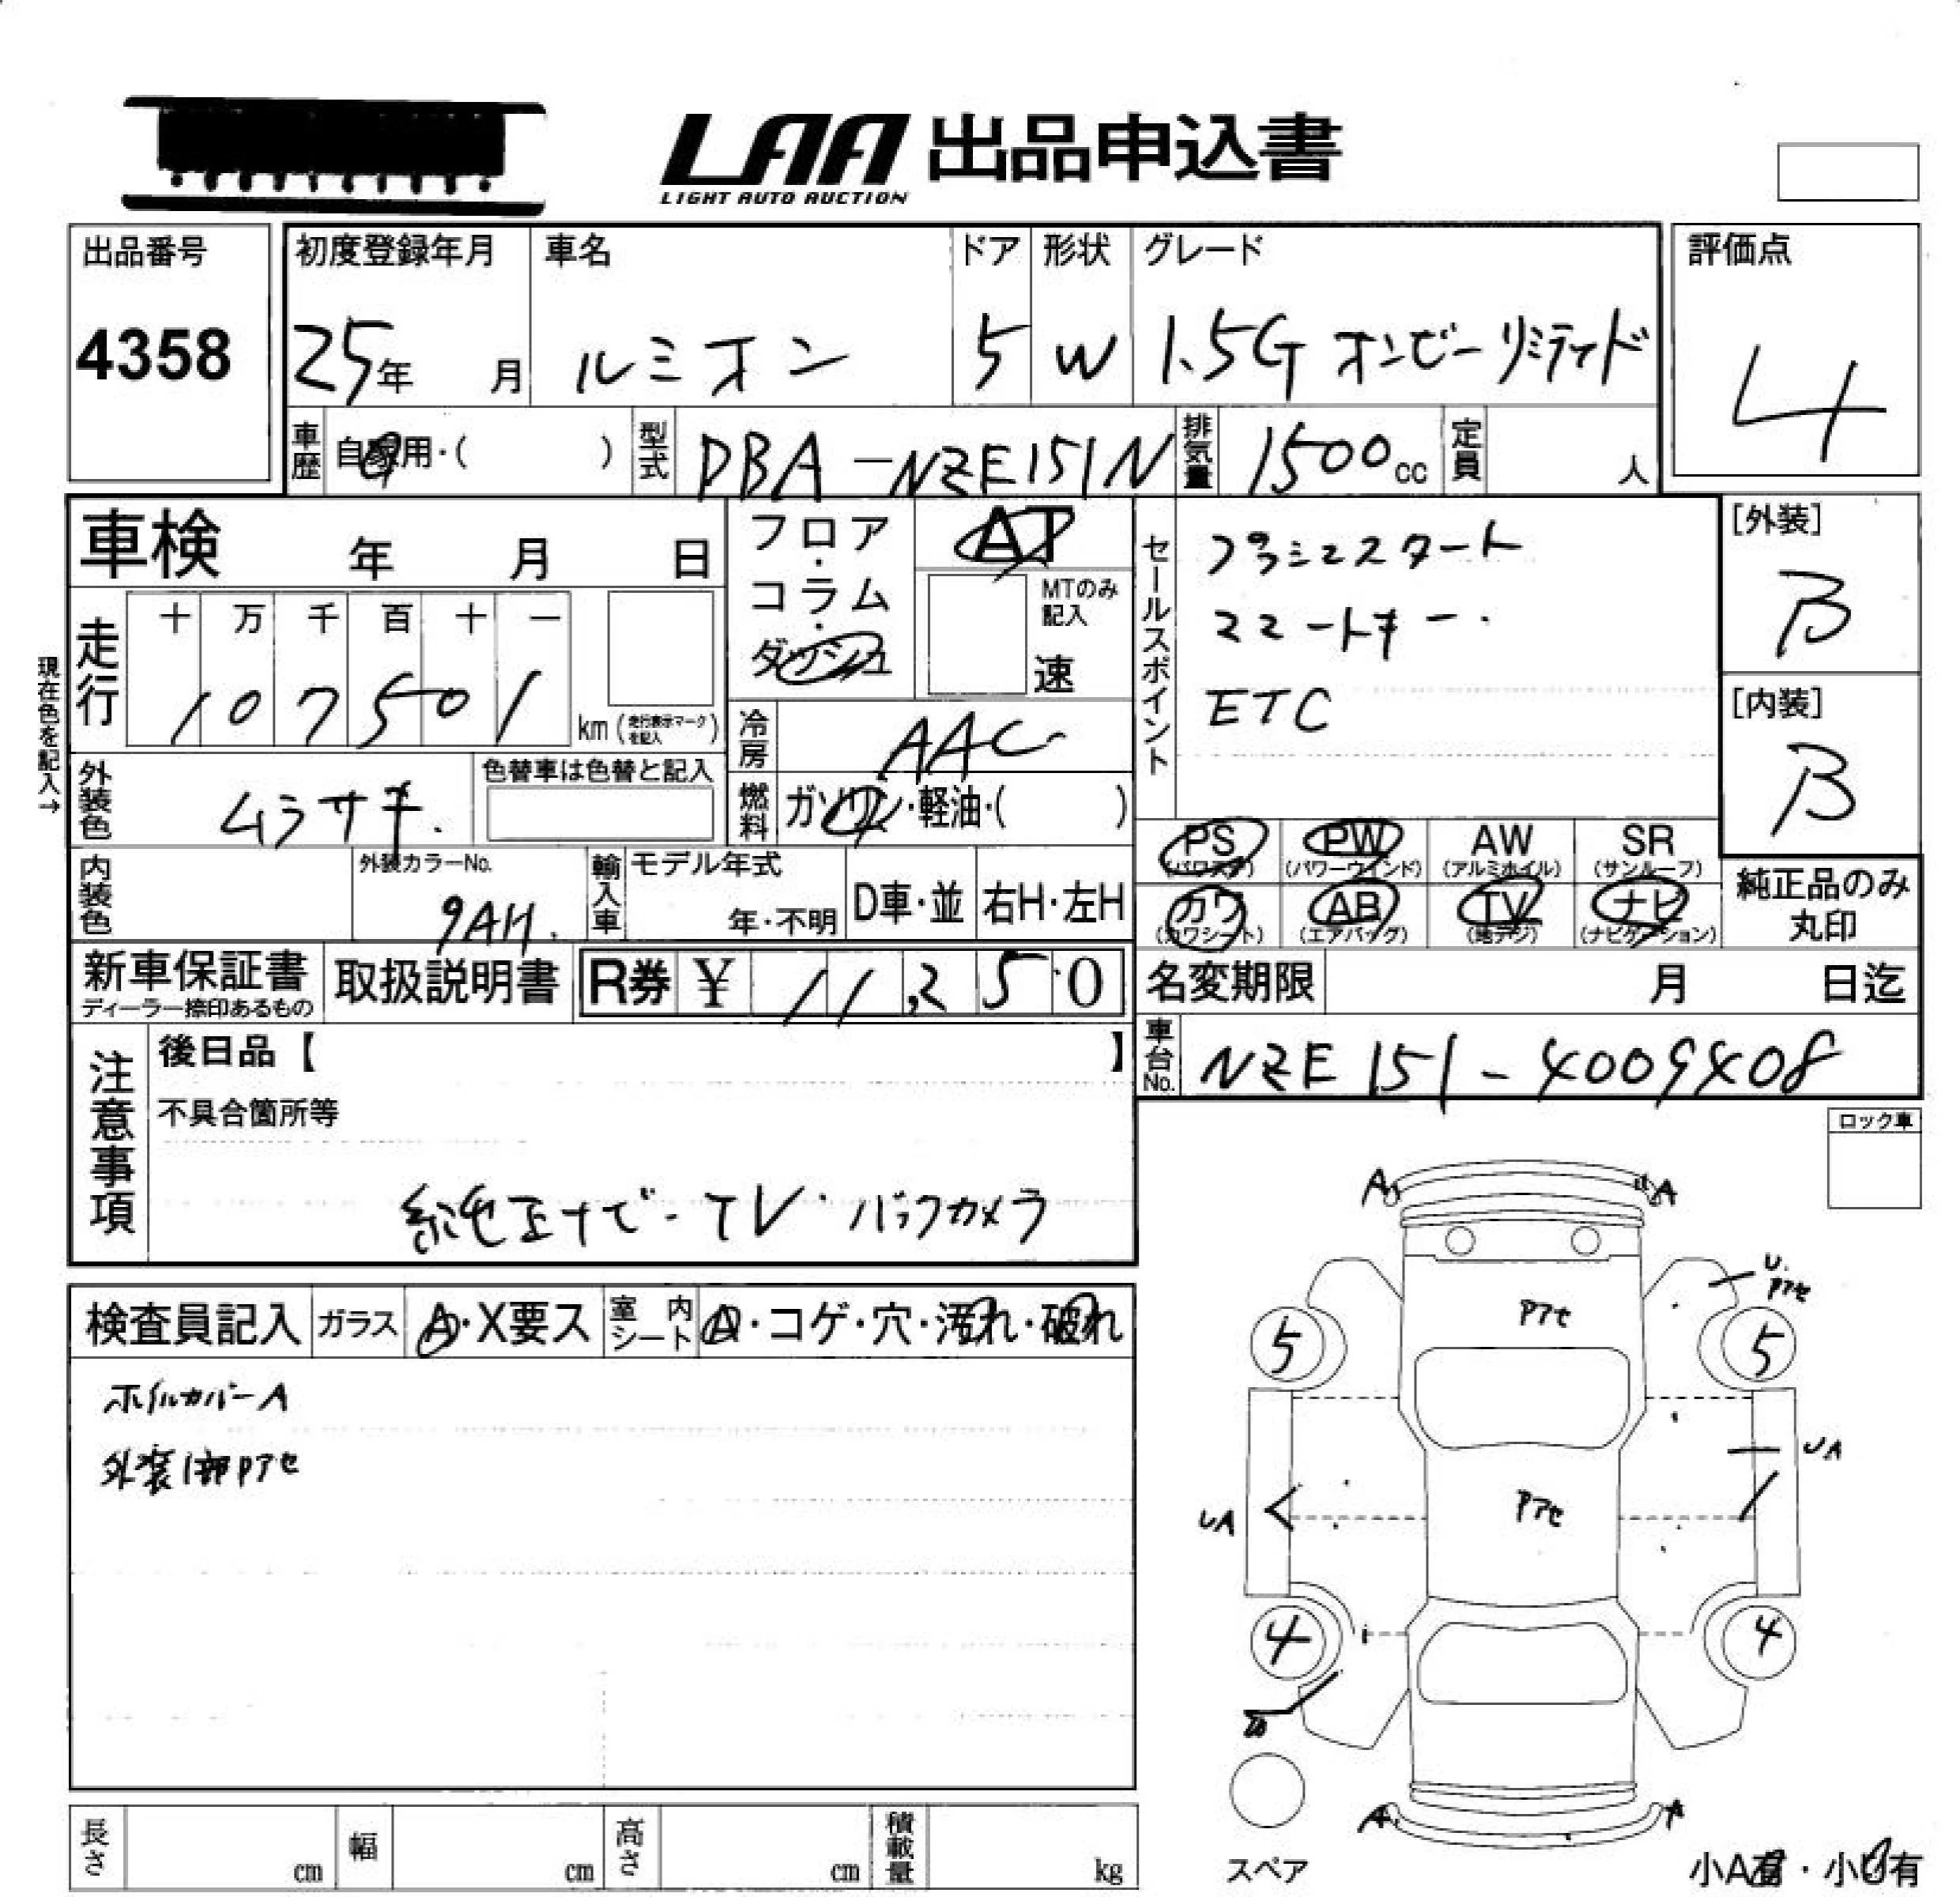 LAA 出品申込書
LIGHT AUTO AUCTION
出品番号
4358
初度登録年月
25年 月
車名
ルミオン
ドア
5
形状
W
グレード
1.5G オンビーリミティド
評価点
4
車歴 自家用・( )
型式 DBA-NZE151N
排気量 1500cc
定員 人
車検 年 月 日
フロア・コラム・ダッシュ
AT
MTのみ記入
速
セールスポイント
プッシュスタート
スマートキー.
ETC
[外装]
B
[内装]
B
現在色を記入→
走行
十 万 千 百 十 一
107501
km (走行表示マークを記入)
冷房 AAC
燃料 ガソリン・軽油・( )
外装色 ムラサキ.
色替車は色替と記入
内装色
外装カラーNo.
9AH.
輸入車
モデル年式
年・不明
D車・並
右H・左H
PS
(パワステ)
PW
(パワーウインド)
AW
(アルミホイル)
SR
(サンルーフ)
カワ
(カワシート)
AB
(エアバッグ)
TV
(地デジ)
ナビ
(ナビゲーション)
純正品のみ
丸印
新車保証書
ディーラー捺印あるもの
取扱説明書
R券 ¥ 11,250
名変期限 月 日迄
車台No. NZE151-4009408
注意事項
後日品【 】
不具合箇所等
純正ナビ-TV・バックカメラ
ロック車
検査員記入
ガラス
A・X要ス
室内シート
A・コゲ・穴・汚れ・破れ
ホイルカバーA
外装1部Pアセ
A A
U.
Pアセ
Pアセ
5 5
UA
Pアセ
UA
4 4
A A
スペア
小A有・小U有
長さ cm
幅 cm
高さ cm
積載量 kg